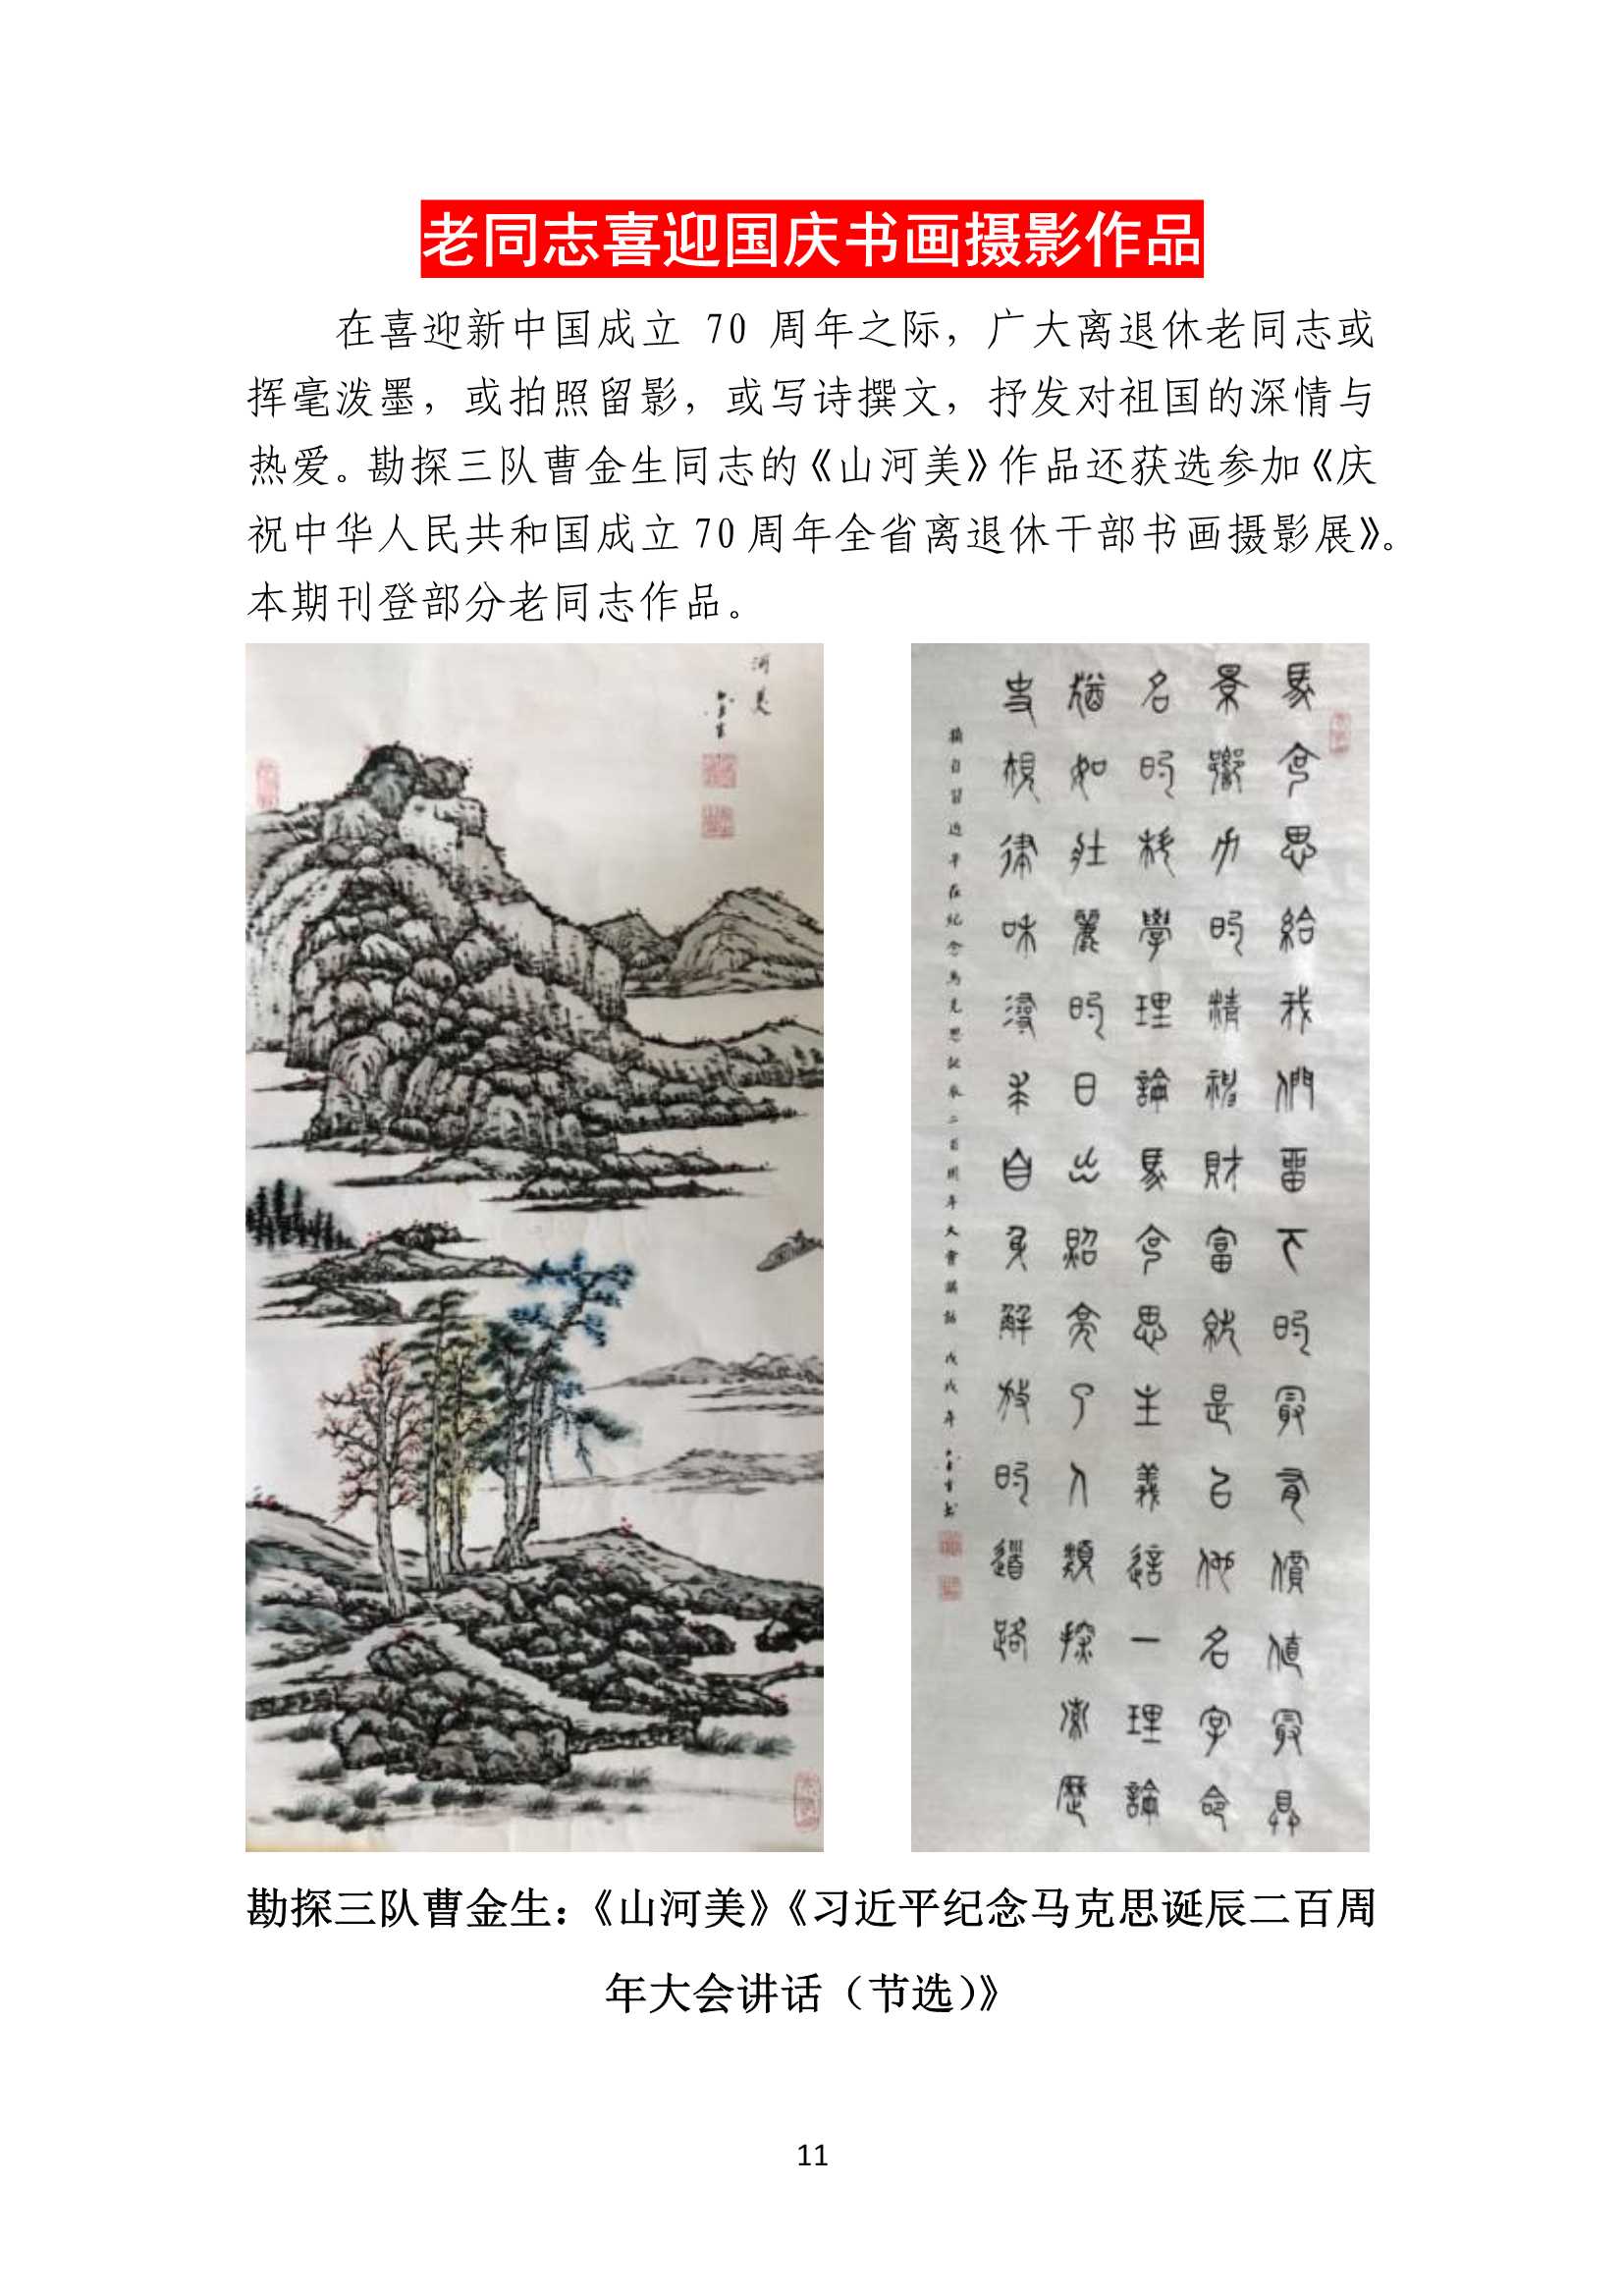 老同志喜迎国庆书画摄影作品
在喜迎新中国成立 70 周年之际，广大离退休老同志或
挥毫泼墨，或拍照留影，或写诗撰文，抒发对祖国的深情与
热爱。勘探三队曹金生同志的《山河美》作品还获选参加《庆
祝中华人民共和国成立 70 周年全省离退休干部书画摄影展》。
本期刊登部分老同志作品。
河美
金生
馬克思給我們留下的最有價值最具
景響力的精神財富就是以他名字命
名的科學理論馬克思主義這一理論
猶如壯麗的日出照亮了人類探索歷
史規律和尋求自身解放的道路
摘自習近平在紀念馬克思誕辰二百周年大會講話 戊戌年 金生書
勘探三队曹金生：《山河美》《习近平纪念马克思诞辰二百周
年大会讲话（节选）》
11